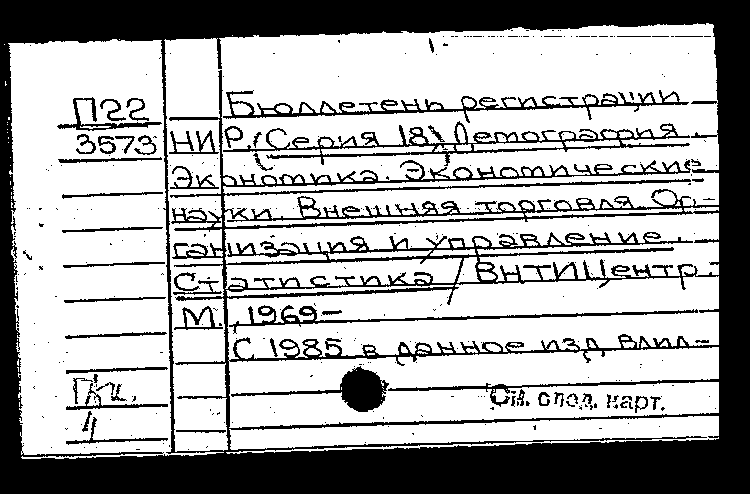 П22 Бюллетень регистрации
3573 НИР. (Серия 18) Демография.
Экономика. Экономические
науки. Внешняя торговля. Ор-
ганизация и управление.
Статистика / ВНТИЦентр.-
М., 1969-
С 1985 в данное изд. влил-
См. след. карт.